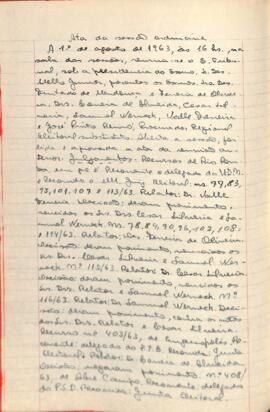 Ata da sessão ordinaria
A 1º de agosto de 1963, ás 16 hs, na
sala das sessões, reuniu-se o E. Tribu-
nal, sob a presidencia do Exmo. Sr. Des.
Mello Junior, presentes os Exmos. Srs. Des.
de e de Olivei-
ra, Drs. de Oliveira, Cesar Sil-
veira, Samuel Werneck, Valle
e José Pinto Procurador Regional
Eleitoral substituto. Aberta a sessão, foi
lida e aprovada a ata da reunião an-
terior. Julgamentos: Recursos de Rio
em que é Recorrente o delegado da U.D.N.
e Recorrido o M.M. Juiz Eleitoral. ns. 77, 83,
93, 101, 107 e 113/63. Relator: Dr. Valle
Decisão: deram provimento,
vencidos os Srs. Drs. Cesar Silveira e Sa-
muel Werneck. Ns. 78, 84, 90, 96, 102, 108,
e 114/63. Relator: Des. de Oliveira
Decisão: deram provimento, vencidos os
Srs. Drs. Cesar Silveira e Samuel Wer-
neck. Nº 115/63. Relator Dr. Cesar Silveira
Decisão: deram provimento, vencidos os
Srs. Drs. Relator e Samuel Werneck. Nº
116/63. Relator: Dr. Samuel Werneck. Deci-
são: deram provimento, contra os votos
dos Srs. Drs. Relator e Cesar Silveira.
Recurso nº 403/63, de
rente: delegado do P.T.B. Recorrida: Junta
Eleitoral. Relator: Dr. de Oliveira
Decisão: negaram provimento. nº 408/
63, de Campo. Recorrente: delegado
do P.S.D. Recorrida: Junta Eleitoral.